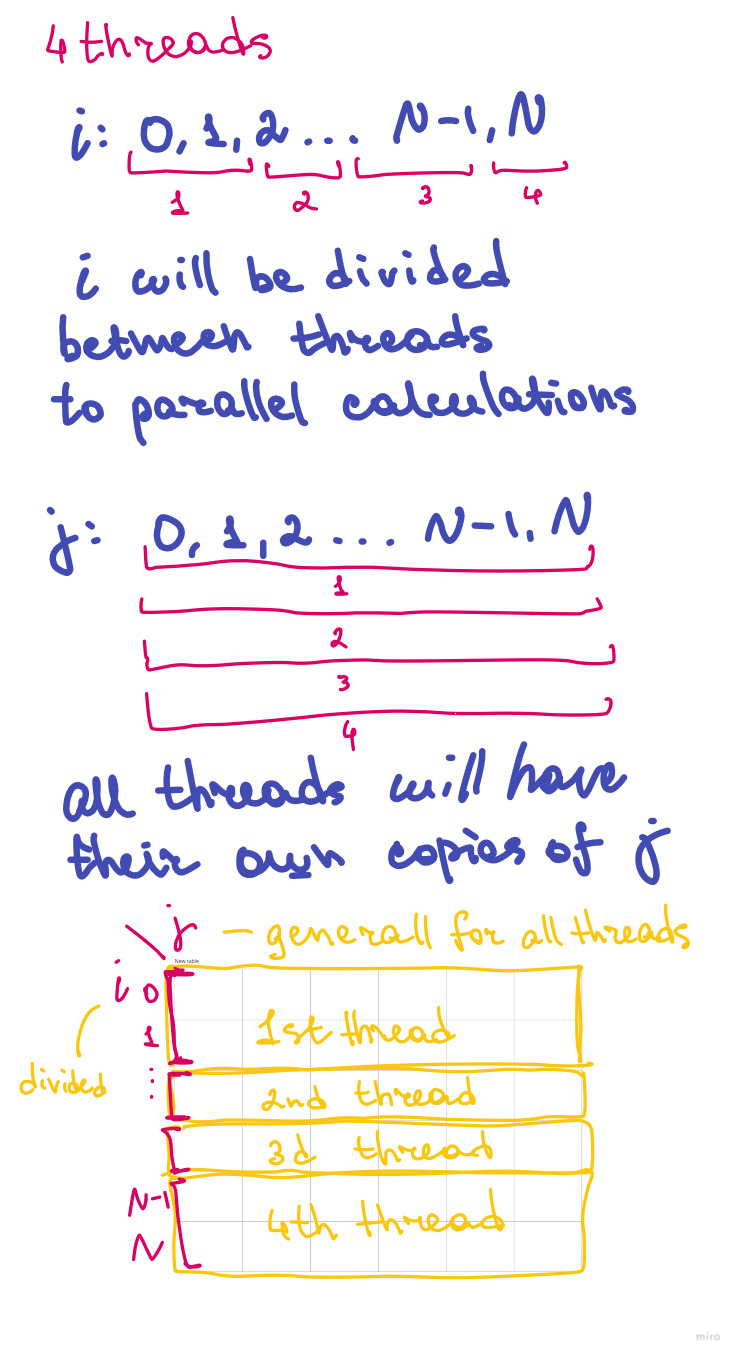 4 threads
i: 0, 1, 2 ... N-1, N
1 2 3 4
i will be divided
between threads
to parallel calculations
j: 0, 1, 2 ... N-1, N
1
2
3
4
all threads will have
their own copies of j
j - generall for all threads
New table
i 0
1st thread
1
divided
⋮
2nd thread
3d thread
N-1
4th thread
N
miro